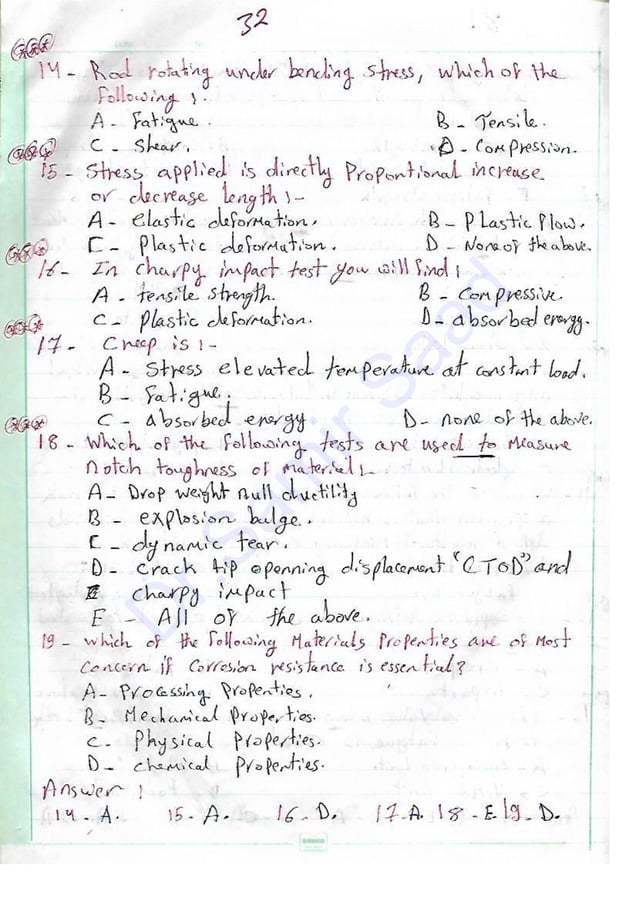 32
14 - Rod rotating under bending stress, which of the
following :.
A - Fatigue. B - Tensile.
C - Shear. D - Compression.
15 - Stress applied is directly Propontional increase
or decrease length :-
A - elastic deformation. B - Plastic flow.
C - Plastic deformation. D - None of the above.
16 - In charpy impact test you will find :
A - tensile strength. B - compressive.
C - plastic deformation. D - absorbed energy.
17 - Creep is :-
A - Stress elevated temperature at constant load.
B - Fatigue.
C - absorbed energy D - none of the above.
18 - Which of the following tests are used to measure
notch toughness of material :-
A - Drop weight null ductility
B - explosion bulge.
C - dynamic tear.
D - crack tip openning displacement "CTOD" and
charpy impact
E - All of the above.
19 - which of the following Materials Properties are of Most
concern if corrosion resistance is essential?
A - Processing Properties.
B - Mechanical Properties.
C - Physical Properties.
D - chemical Properties.
Answer :
14 - A. 15 - A. 16 - D. 17 - A. 18 - E. 19 - D.
Dr. Samir Saad